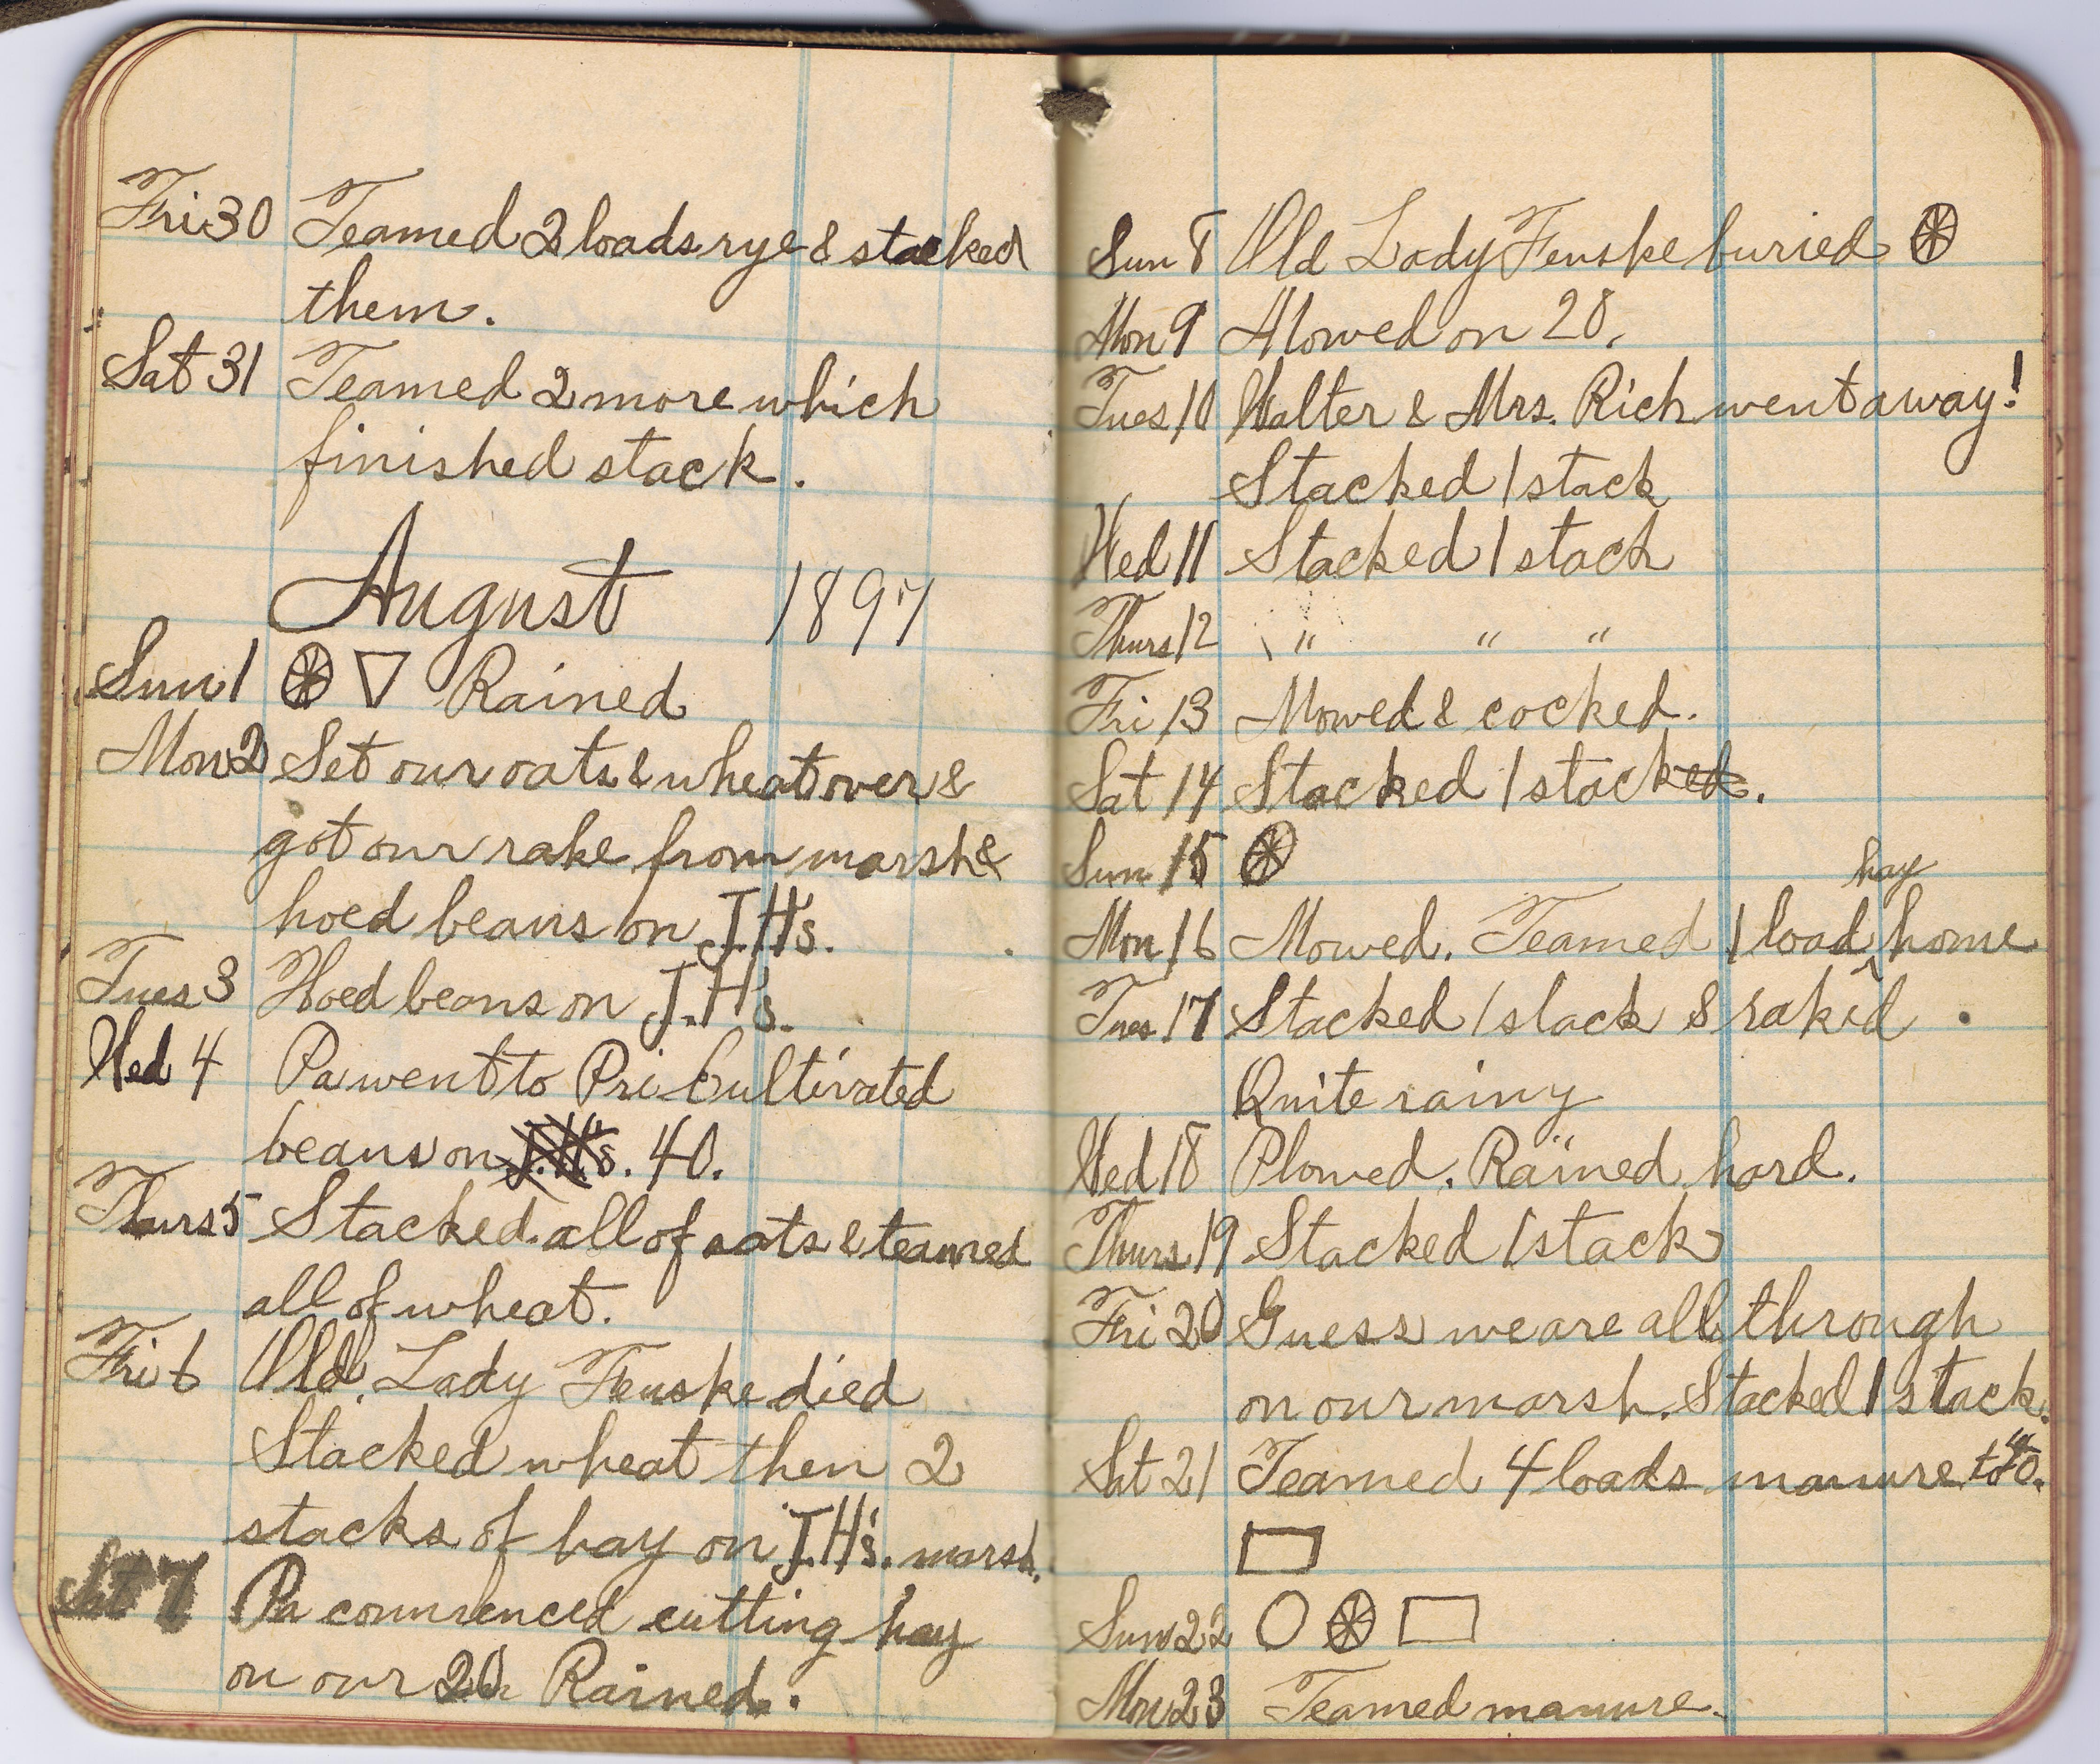 Fri 30 Teamed 2 loads rye & stacked
them.
Sat 31 Teamed 2 more which
finished stack.
August 1897
Sun 1 Rained
Mon 2 Set our oats & wheat over &
got our rake from marsh &
hoed beans on J.H's.
Tues 3 Hoed beans on J.H's.
Wed 4 Pa went to Pri Cultivated
beans on J.H's. 40.
Thurs 5 Stacked all of oats & teamed
all of wheat.
Fri 6 Old Lady Fenske died
Stacked wheat then 2
stacks of hay on J.H's. marsh.
Sat 7 Pa commenced cutting hay
on our 20. Rained.
Sun 8 Old Lady Fenske buried
Mon 9 Mowed on 20.
Tues 10 Walter & Mrs. Rich went away!
Stacked 1 stack
Wed 11 Stacked 1 stack
Thurs 12 " " "
Fri 13 Mowed & cocked.
Sat 14 Stacked 1 stacked.
Sun 15
hay
Mon 16 Mowed. Teamed 1 load ^ home
Tues 17 Stacked 1 stack & raked.
Quite rainy
Wed 18 Plowed. Rained hard.
Thurs 19 Stacked 1 stack
Fri 20 Guess we are all through
on our marsh. Stacked 1 stack.
Sat 21 Teamed 4 loads manure to 40.
Sun 22
Mon 23 Teamed manure.